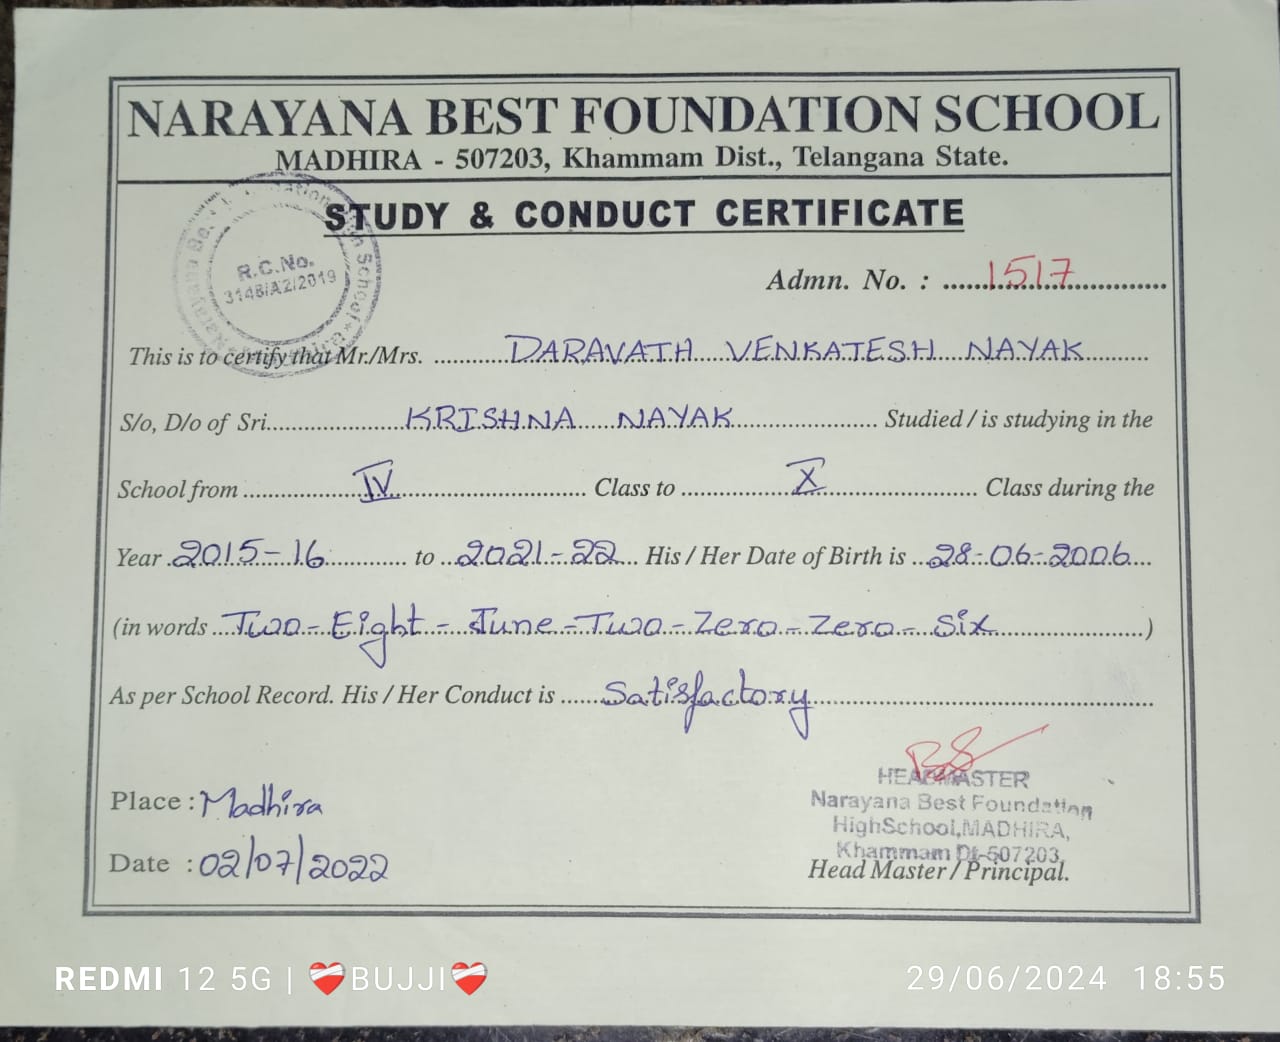 NARAYANA BEST FOUNDATION SCHOOL
MADHIRA - 507203, Khammam Dist., Telangana State.
STUDY & CONDUCT CERTIFICATE
R.C.No.
3148/A2/2019
Admn. No. : 1517
This is to certify that Mr./Mrs. DARAVATH VENKATESH NAYAK
S/o, D/o of Sri KRISHNA NAYAK Studied / is studying in the
School from IV Class to X Class during the
Year 2015-16 to 2021-22 His / Her Date of Birth is 28-06-2006
(in words Two-Eight-June-Two-Zero-Zero-Six )
As per School Record. His / Her Conduct is Satisfactory
Place : Madhira
Date : 02/07/2022
HEADMASTER
Narayana Best Foundation
HighSchool,MADHIRA,
Khammam Dt-507203,
Head Master / Principal.
REDMI 12 5G | ❤️‍🩹BUJJI❤️‍🩹
29/06/2024 18:55